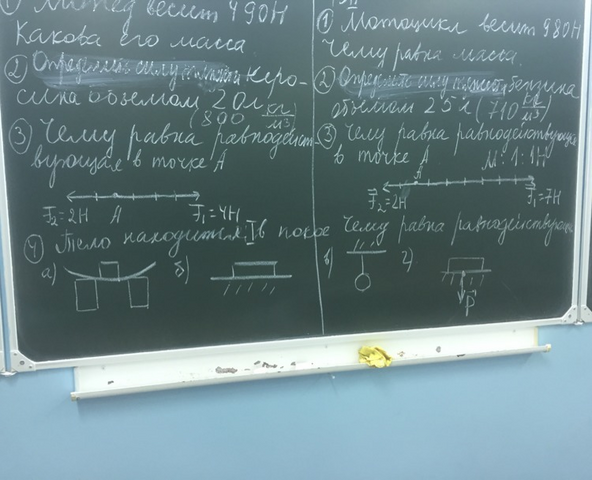 ① Мопед весит 490Н
Какова его масса
② Определить силу тяжести керо-
сина объемом 20л
(800 кг/м³)
③ Чему равна равнодейст-
вующая в точке А
F₂=2Н А F₁=4Н
II
① Мотоцикл весит 980Н
Чему равна масса.
② Определить силу тяжести бензина
объемом 25л (710 кг/м³)
③ Чему равна равнодействующая
в точке А М: 1:1Н
А
F₂=2Н F₁=7Н
④ Тело находится в покое Чему равна равнодействующая
а) б) в) г)
P